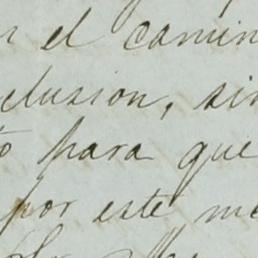 el camin
clusion, sin
para que
por este me